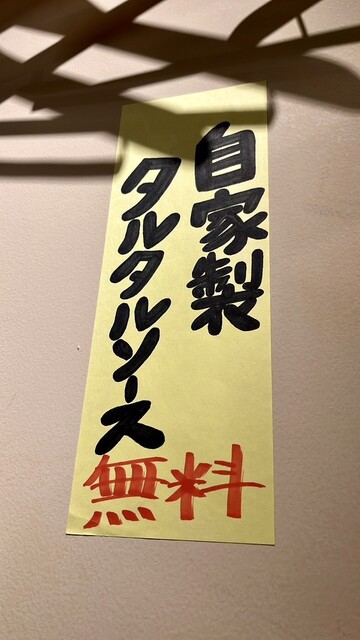 自家製
タルタルソース
無料